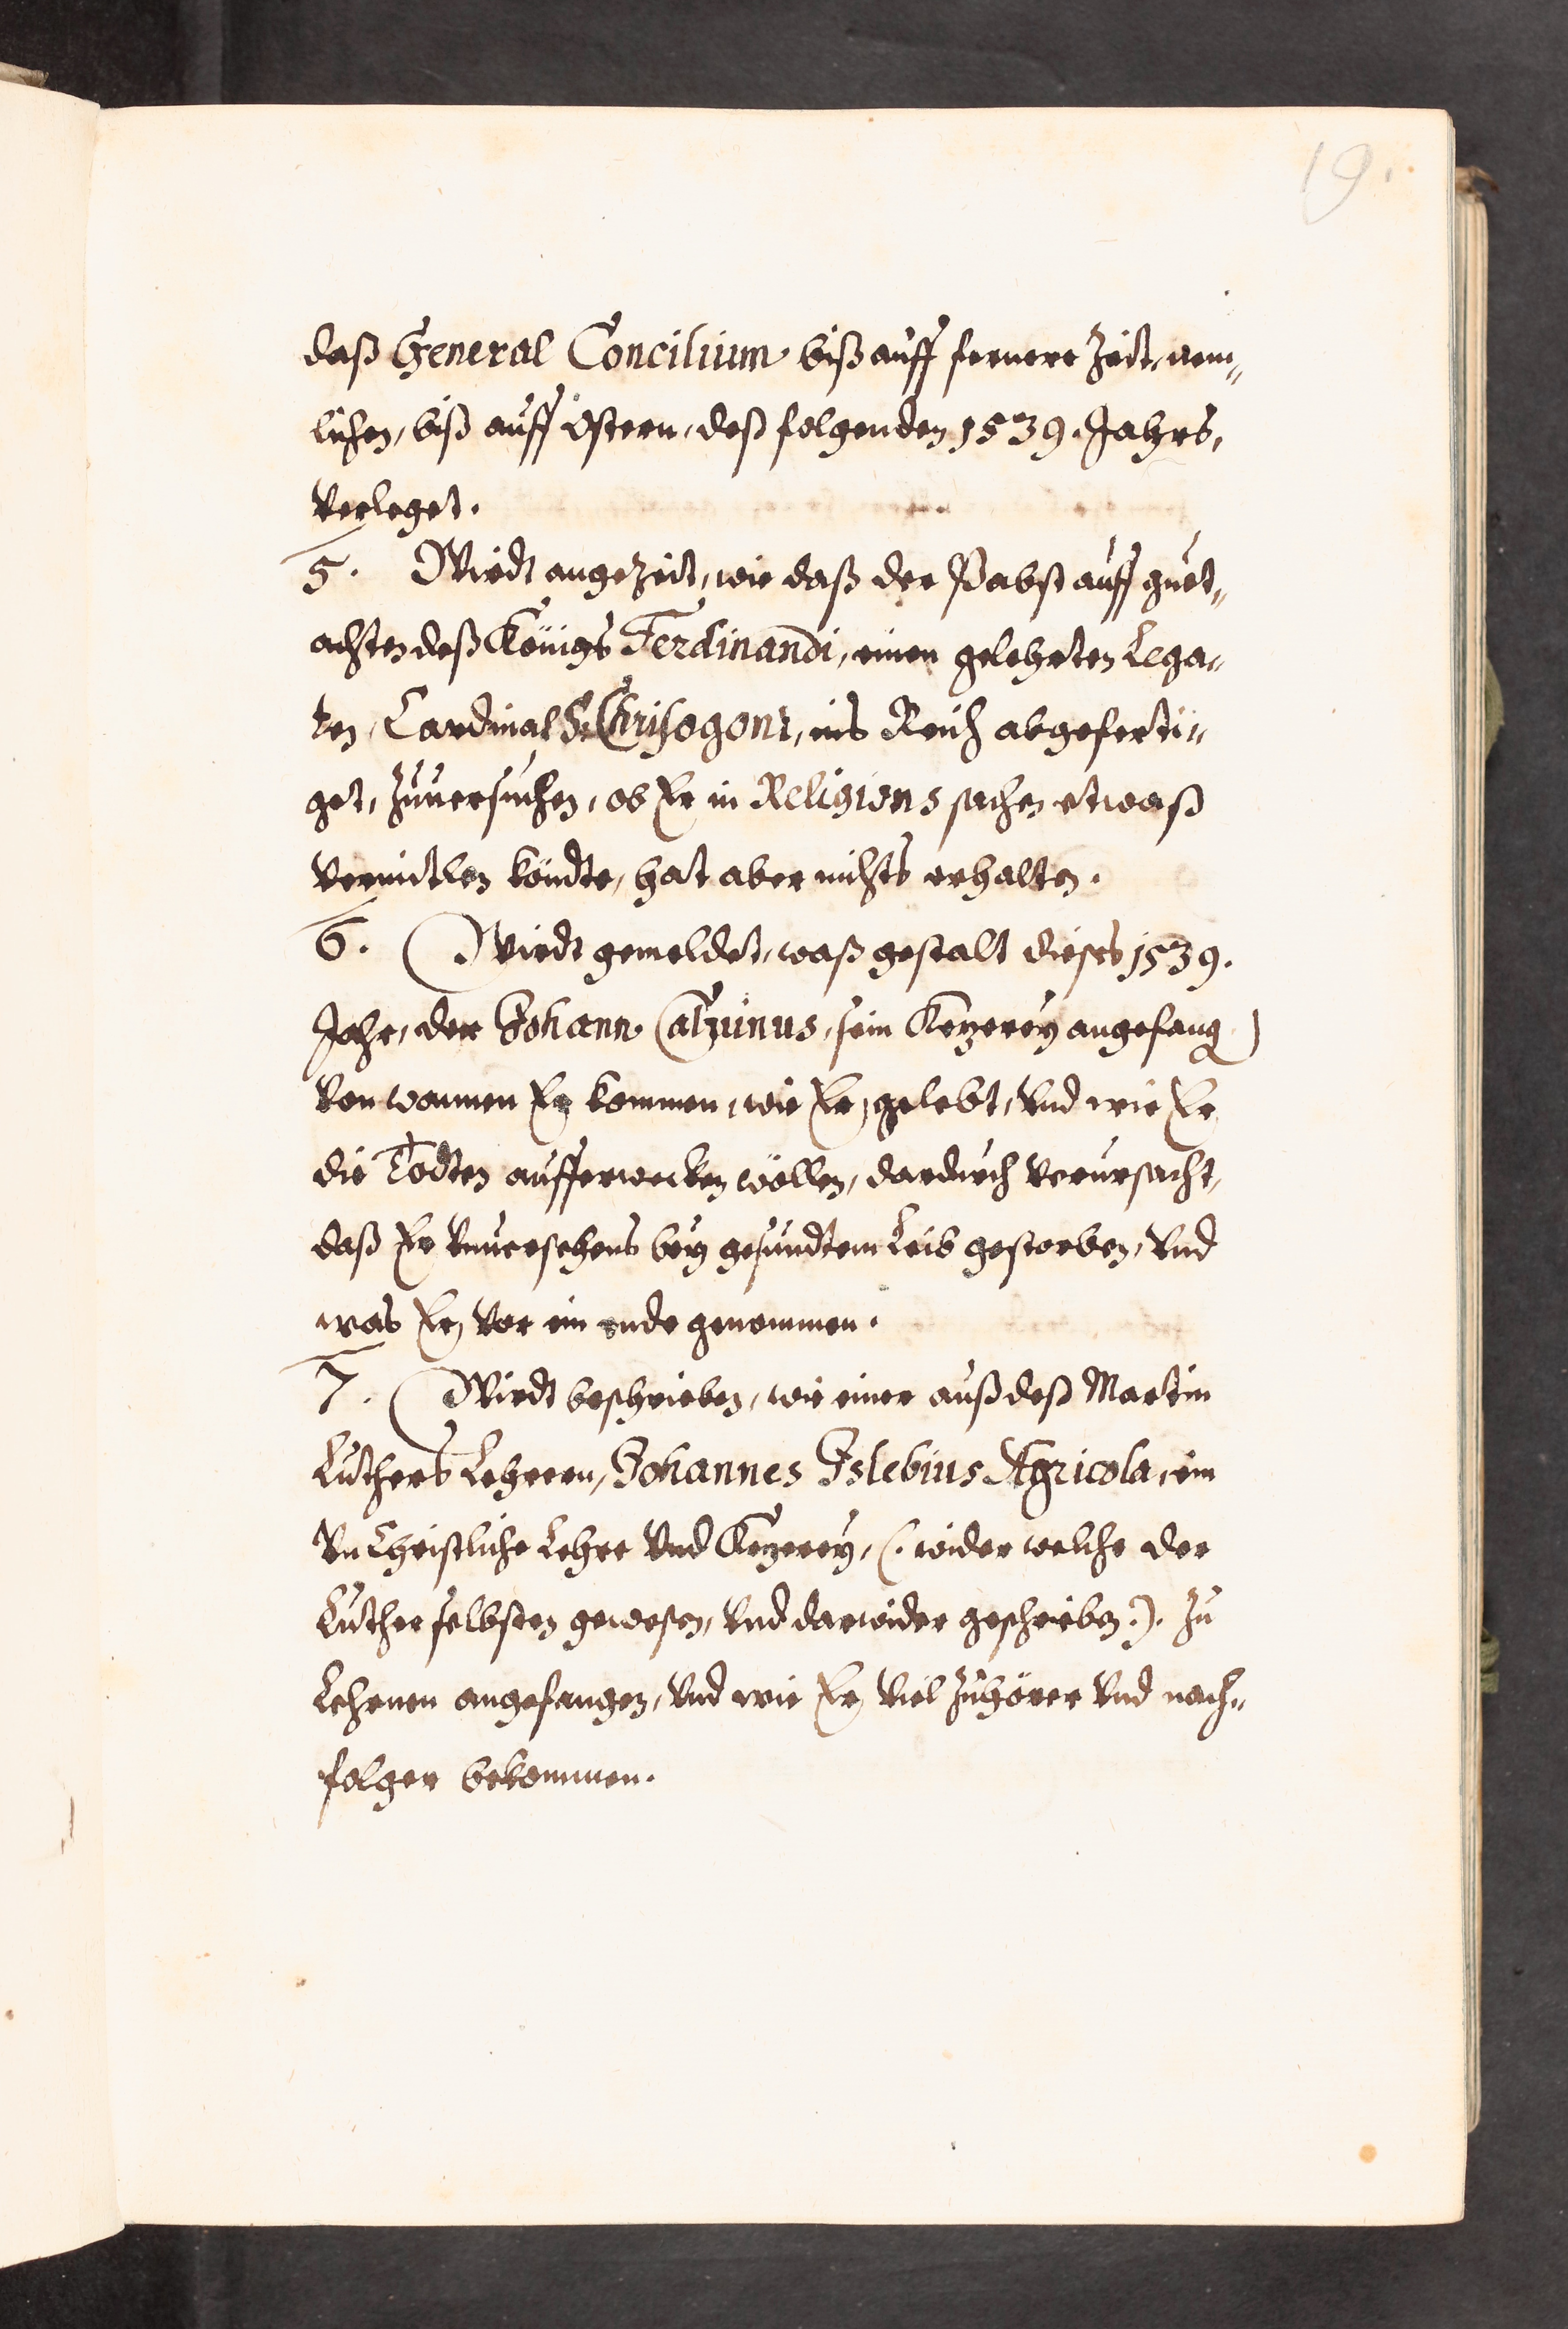 19.
daß General Concilium biß auff fernere Zeit, nem„
lichen, biß auff Ostern, deß folgenden 1539. Jahrs,
verleget.
5. Wirdt angezeit, wie daß der Pabst auff guet„
achten deß Königs Ferdinandi, einen gelehrten Lega„
ten, Cardinal S. Chrisogoni, ins Reich abgeferti„
get, zuuersuchen, ob Er in Religions sachen etwaß
vermitlen köndte, hat aber nichts erhalten.
6. Wirdt gemeldet, waß gestalt dieses 1539.
Jahr, der Johann Caluinus, sein Ketzerey angefang
von wannen Er kommen, wie Er, gelebt, vnd wie Er
die Todten aufferwecken wöllen, dardurch verursacht,
daß Er vnuersehens bey gesundtem Leib gestorben, vnd
was Er, vor ein ende genommen.
7. Wirdt beschrieben, wie einer auß deß Martin
Luthers Lehrern, Johannes Islebius Agricola, ein
vn Christliche Lehre vnd Ketzerey, (. wider welche der
Luther selbsten gewesen, vnd darwider geschrieben .). zu
Lehrnen angefangen, vnd wie Er, viel Zuhörer vnd nach„
folger bekommen.